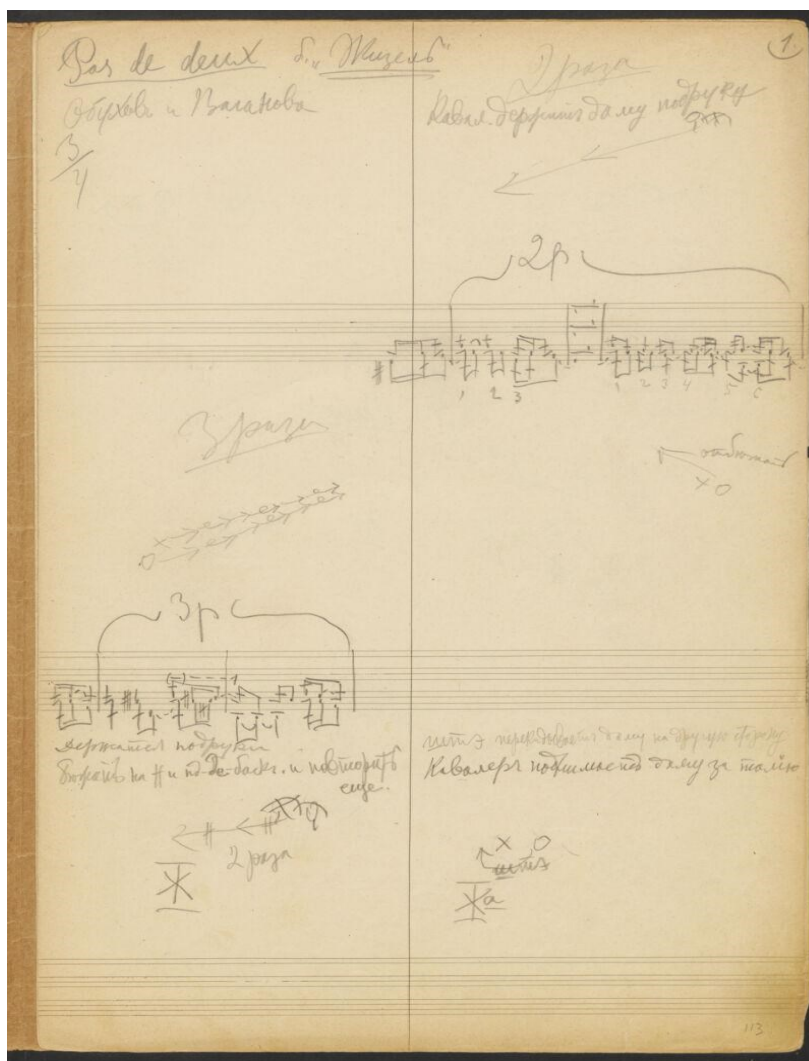 Pas de deux б. „Жизель“
Обуховъ и Ваганова
3/4
3 раза
3 р
держатся подруки
бежать на # и па де баскъ и повторить
еще.
2 раза
Ж
1.
2 раза
Кавал. держитъ даму подруку
2 р
1 2 3 1 2 3 4 5 6
x o
даму на другую сторону
Кавалеръ поднимаетъ даму за талію
x o
Жа
113